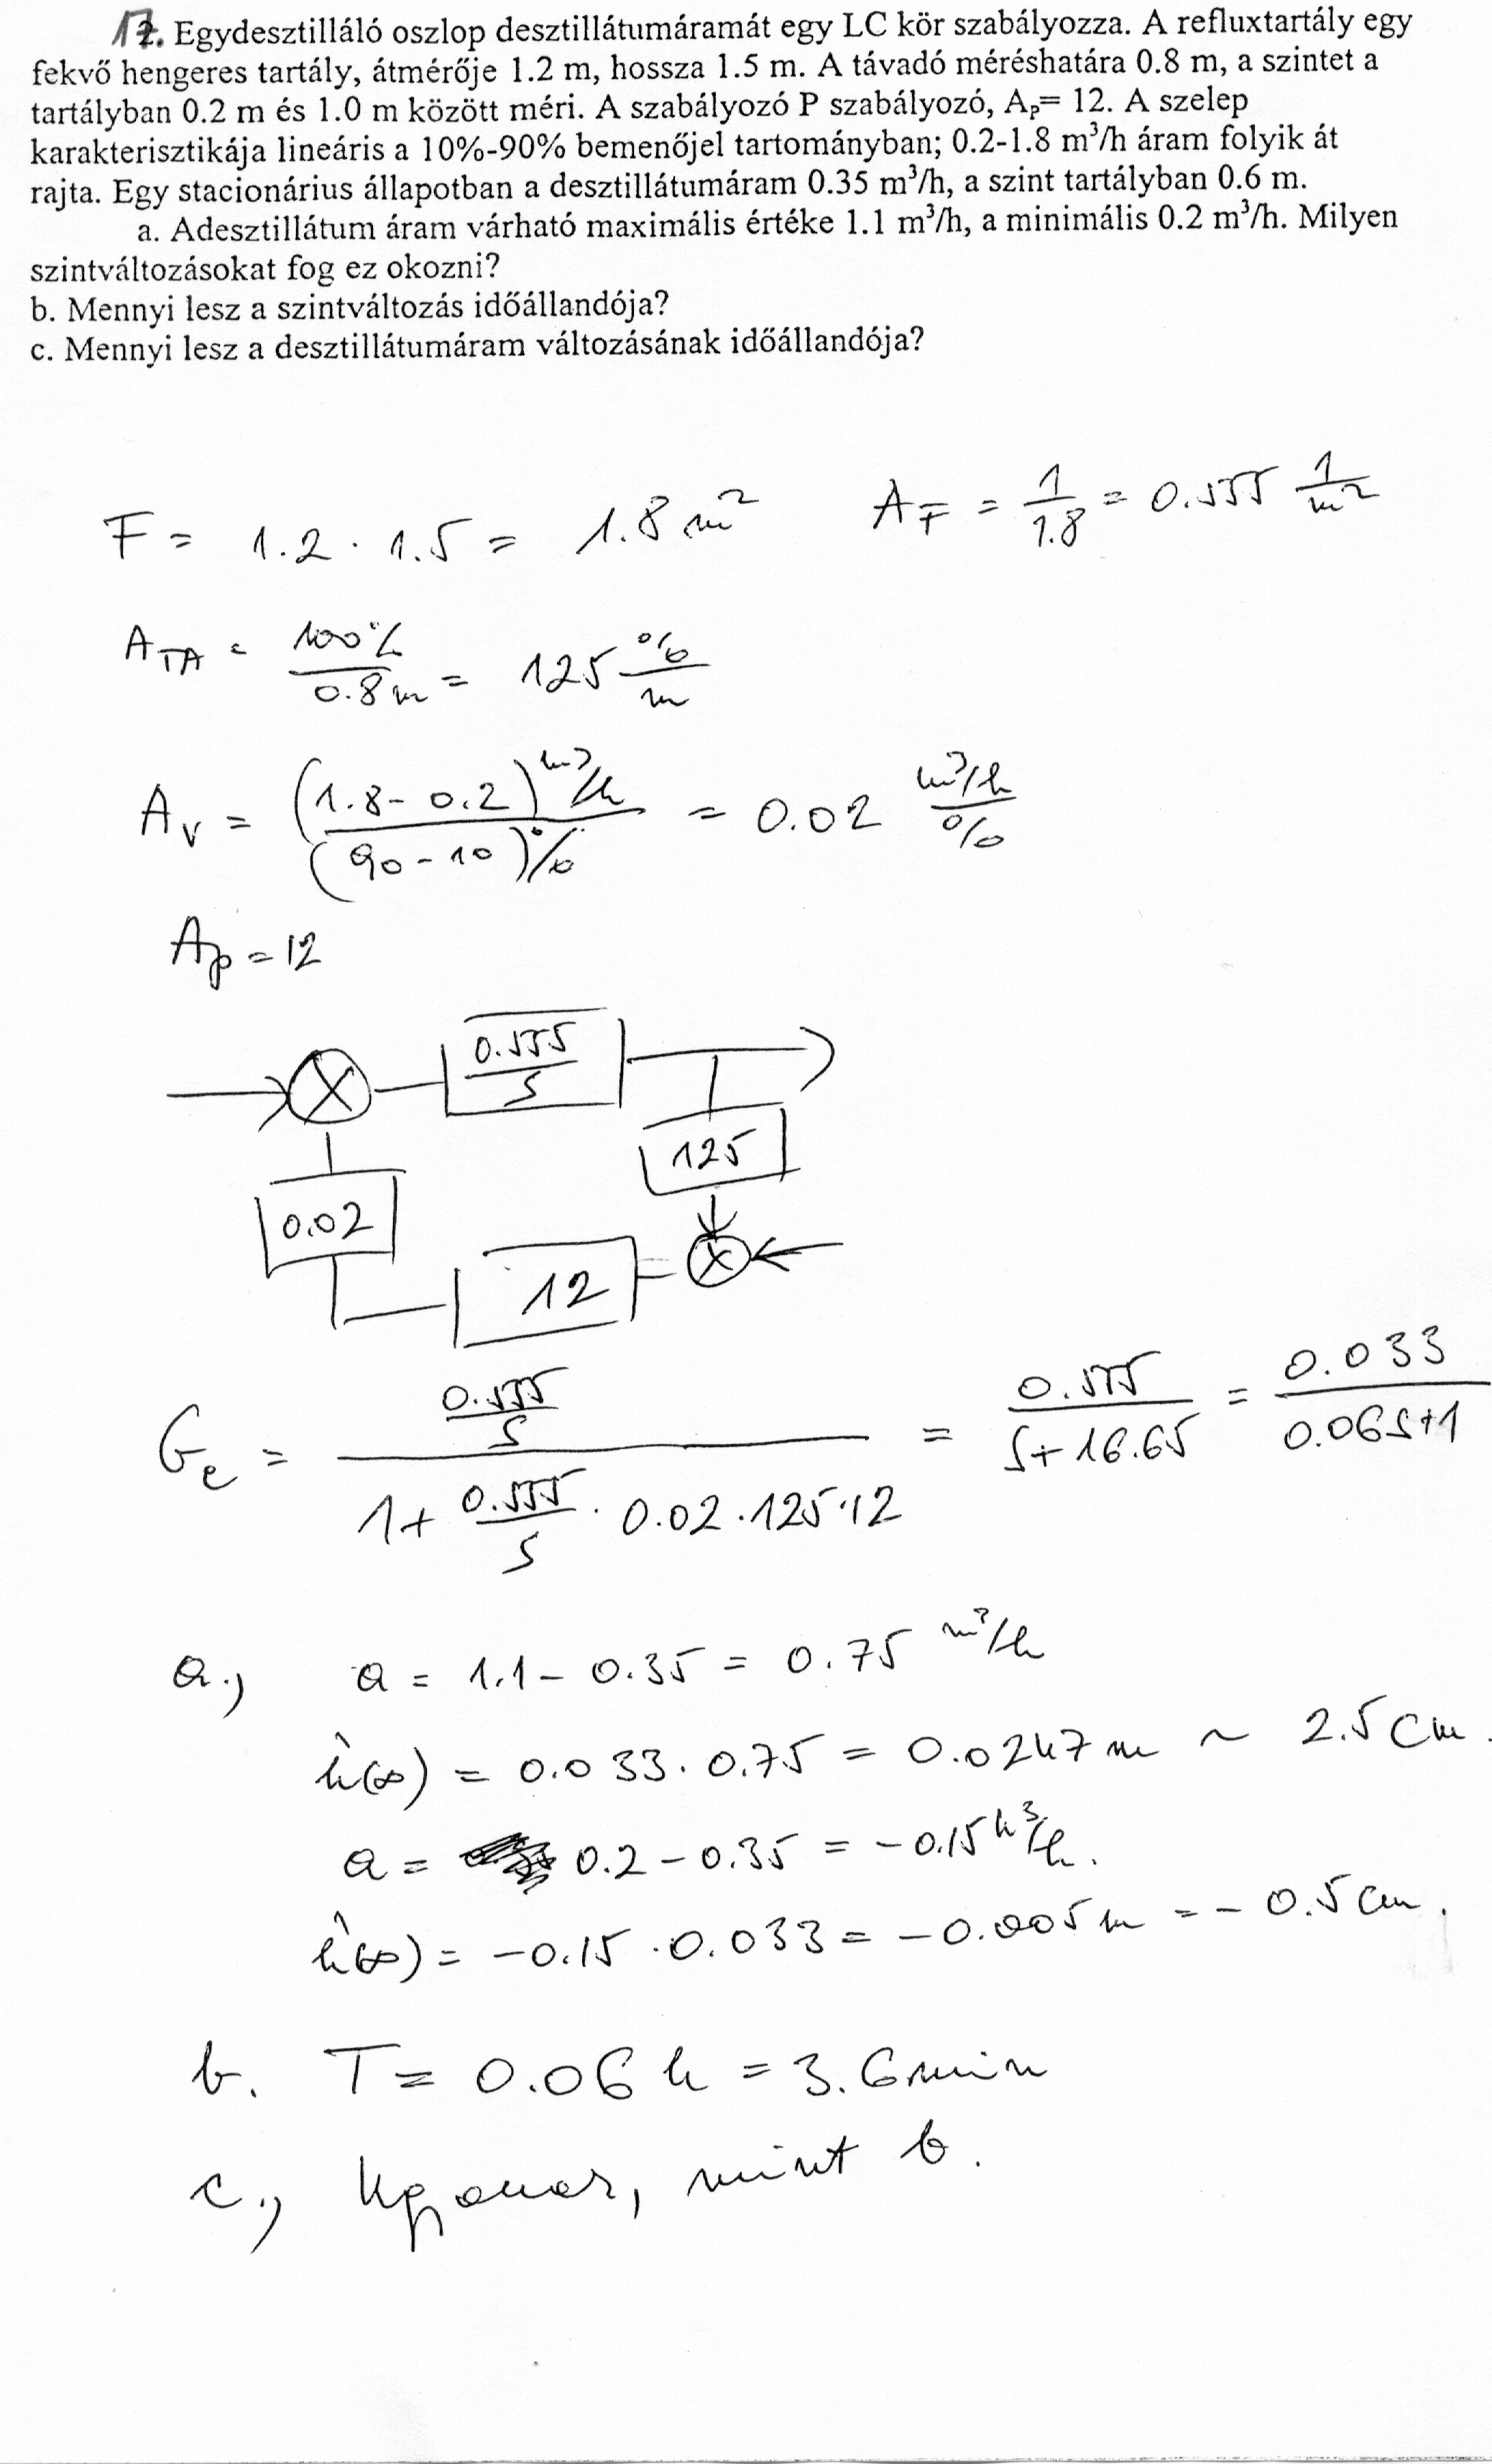 17. Egydesztilláló oszlop desztillátumáramát egy LC kör szabályozza. A refluxtartály egy
fekvő hengeres tartály, átmérője 1.2 m, hossza 1.5 m. A távadó méréshatára 0.8 m, a szintet a
tartályban 0.2 m és 1.0 m között méri. A szabályozó P szabályozó, Aₚ= 12. A szelep
karakterisztikája lineáris a 10%-90% bemenőjel tartományban; 0.2-1.8 m³/h áram folyik át
rajta. Egy stacionárius állapotban a desztillátumáram 0.35 m³/h, a szint tartályban 0.6 m.
a. Adesztillátum áram várható maximális értéke 1.1 m³/h, a minimális 0.2 m³/h. Milyen
szintváltozásokat fog ez okozni?
b. Mennyi lesz a szintváltozás időállandója?
c. Mennyi lesz a desztillátumáram változásának időállandója?
F = 1.2 · 1.5 = 1.8 m² A_F = 1/1.8 = 0.555 1/m²
A_TA = 100%/0.8m = 125 %/m
A_V = (1.8 - 0.2) m³/h / (90 - 10)% = 0.02 m³/h / %
Ap = 12
0.555/s
125
0.02
12
G_e = (0.555/s) / (1 + 0.555/s · 0.02 · 125 · 12) = 0.555/(s + 16.65) = 0.033/(0.06s+1)
a.) a = 1.1 - 0.35 = 0.75 m³/h
ĥ(∞) = 0.033 · 0.75 = 0.0247 m ~ 2.5 cm.
a = 0.2 - 0.35 = -0.15 m³/h.
ĥ(∞) = -0.15 · 0.033 = -0.005 m = - 0.5 cm.
b. T = 0.06 h = 3.6 min
c.) Ugyanaz, mint b.